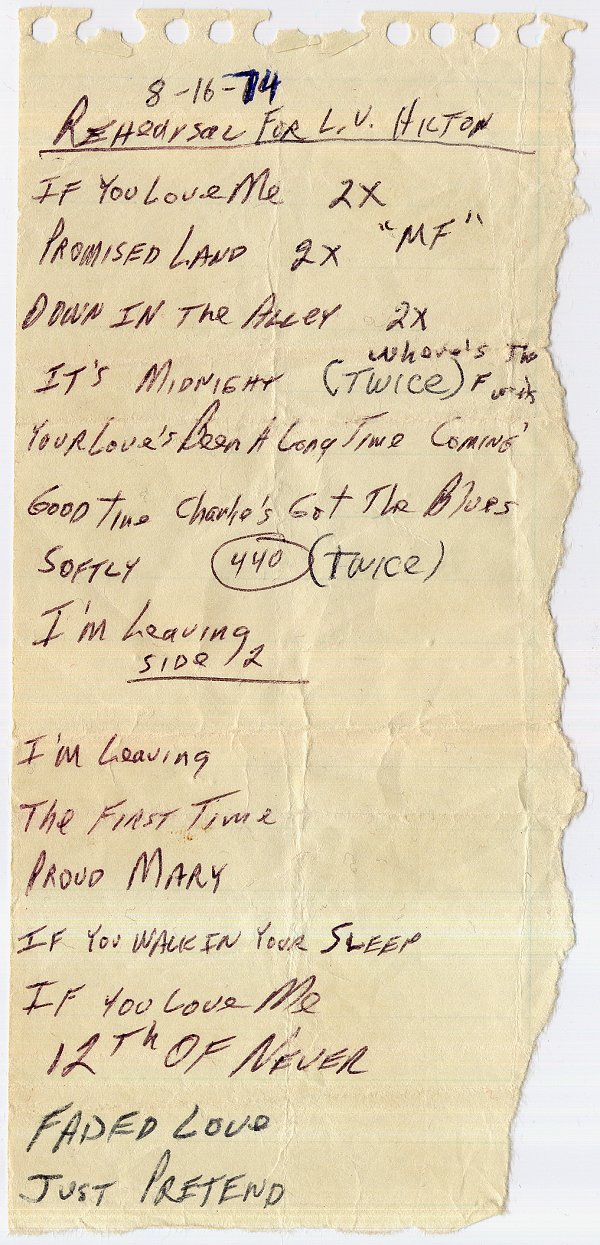 8-16-74
REHEARSAL FOR L.V. HILTON
IF YOU LOVE ME 2X
PROMISED LAND 2X "MF"
DOWN IN THE ALLEY 2X
IT'S MIDNIGHT (TWICE) Where's The
YOUR LOVE'S BEEN A LONG TIME COMING'
GOOD TIME CHARLIE'S GOT THE BLUES
SOFTLY 440 (TWICE)
I'M LEAVING
SIDE 2
I'M LEAVING
THE FIRST TIME
PROUD MARY
IF YOU WALK IN YOUR SLEEP
IF YOU LOVE ME
12TH OF NEVER
FADED LOVE
JUST PRETEND